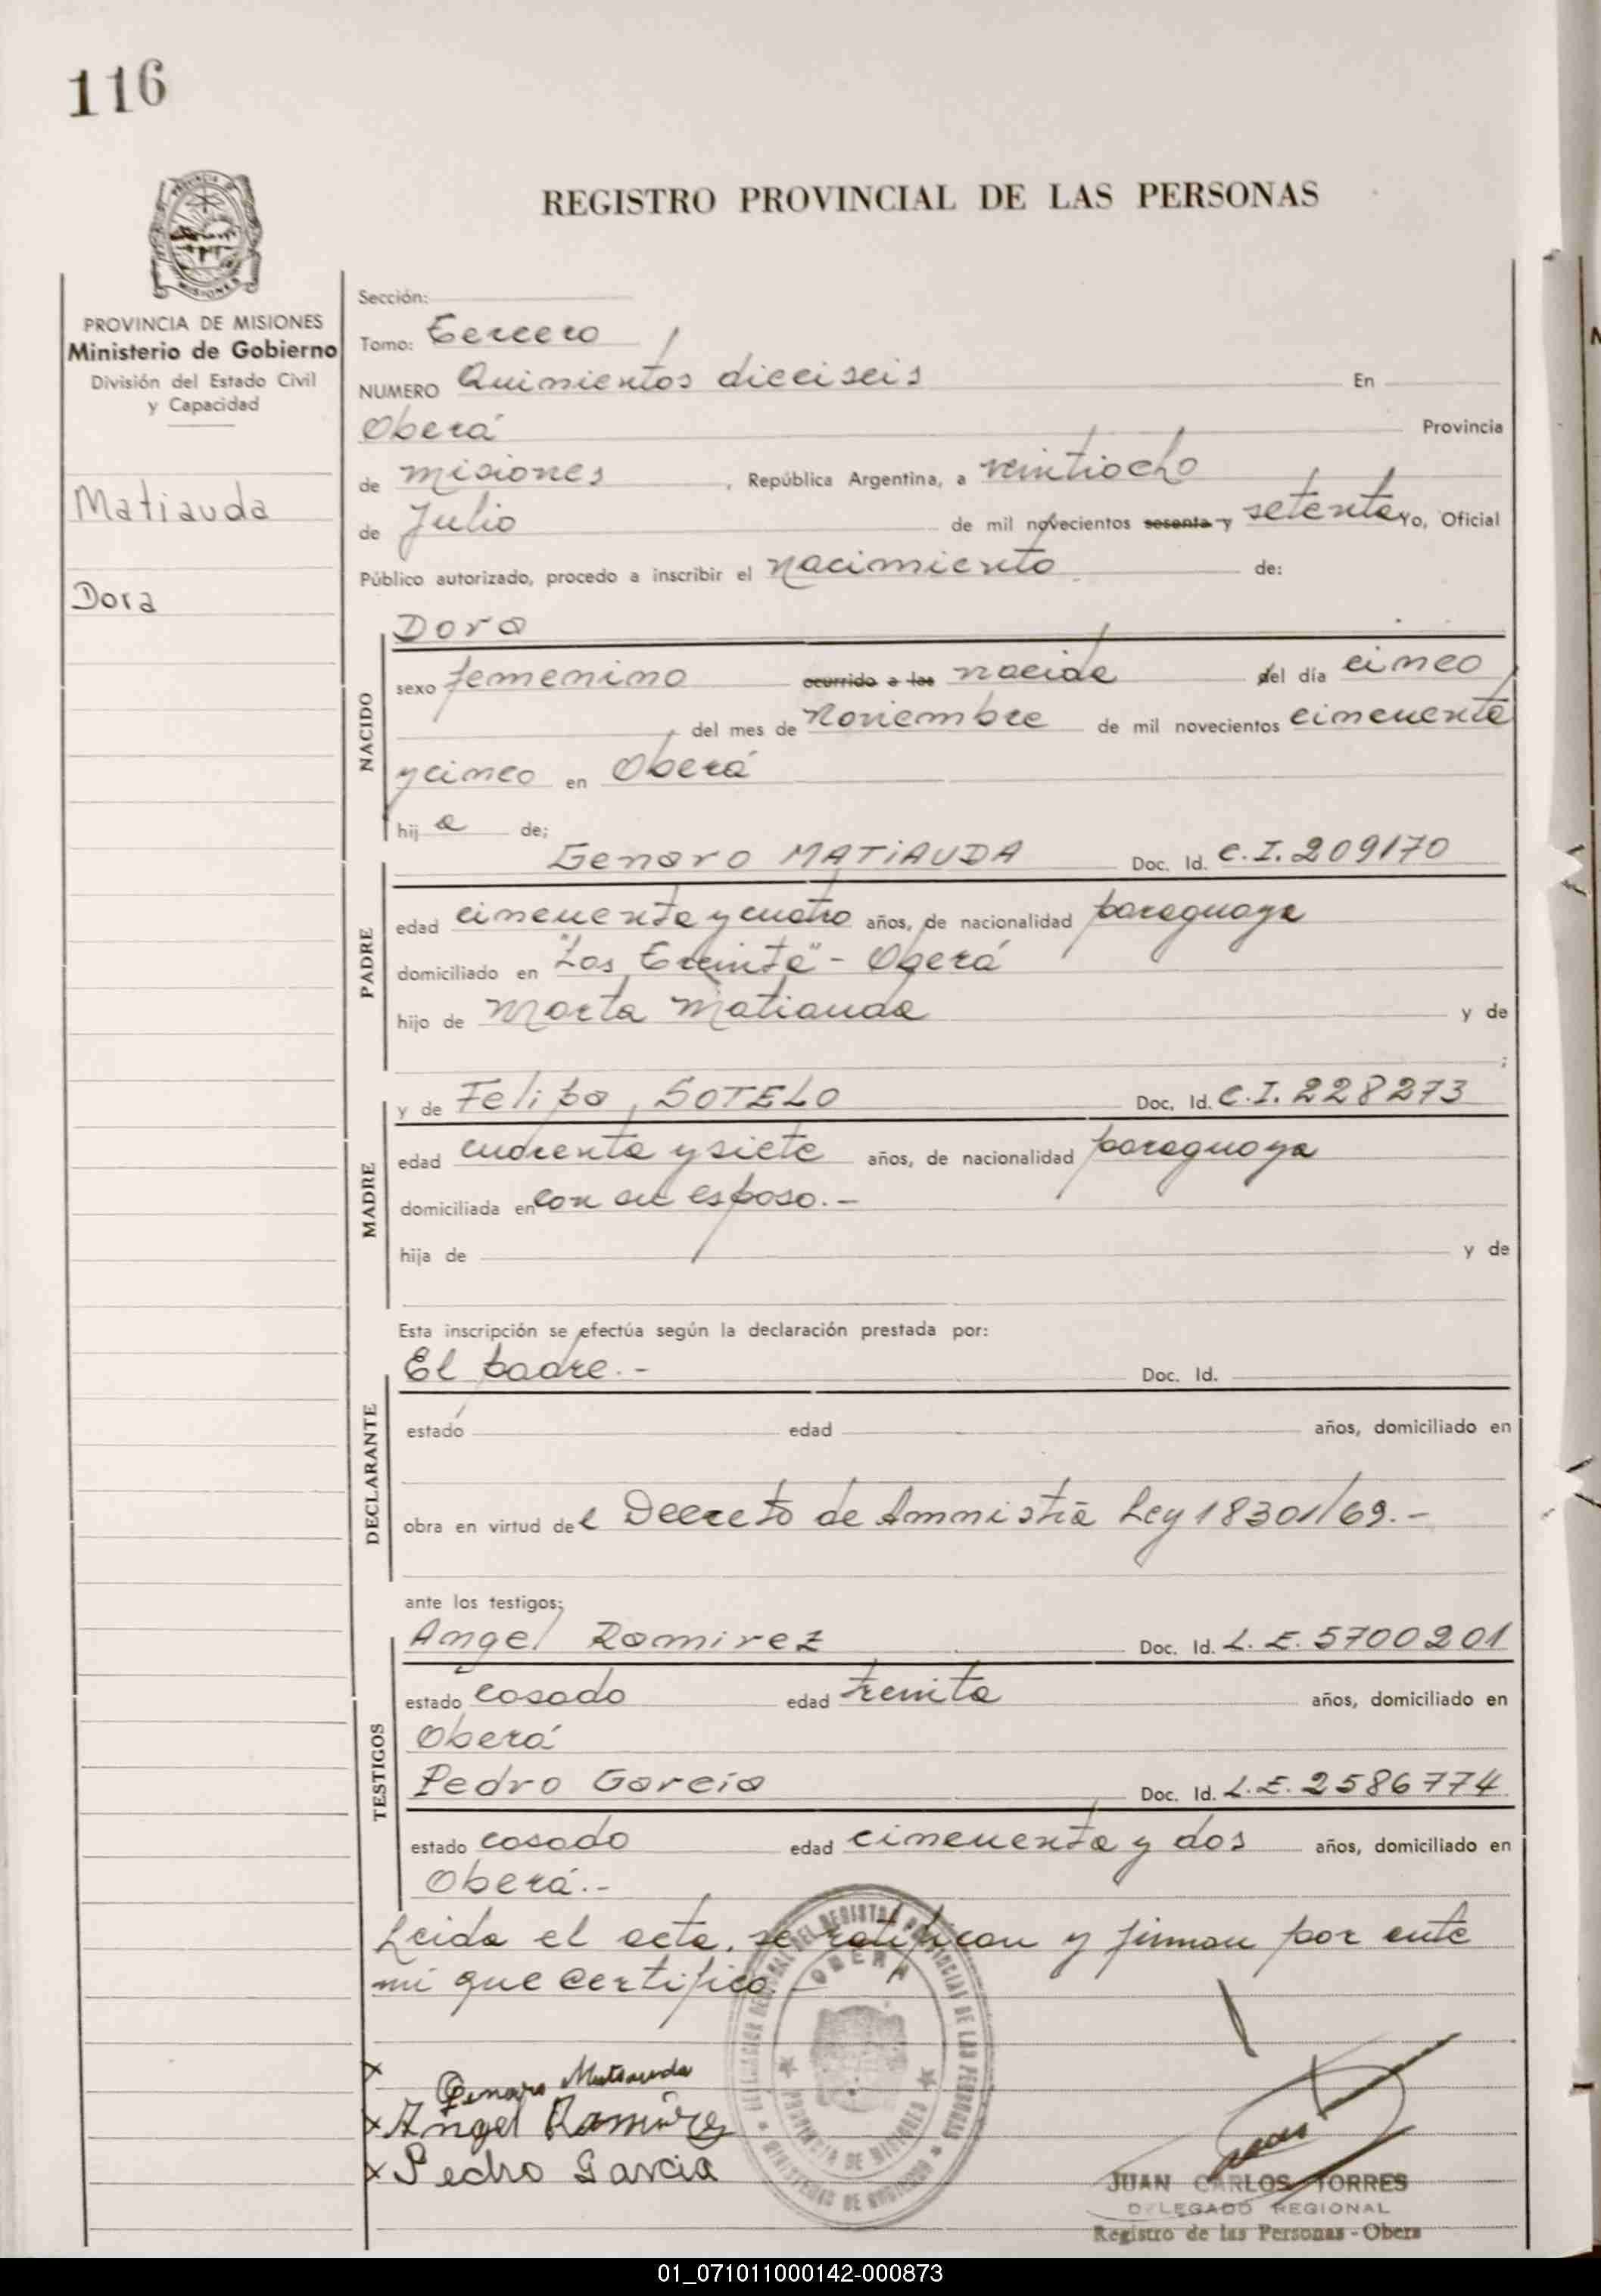 116
REGISTRO PROVINCIAL DE LAS PERSONAS
PROVINCIA DE MISIONES
Ministerio de Gobierno
División del Estado Civil
y Capacidad
Matiauda
Dora
Sección:
Tomo: Tercero
NUMERO Quinientos dieciseis En
Oberá Provincia
de misiones, República Argentina, a veintiocho
de Julio de mil novecientos sesenta y setenta Yo, Oficial
Público autorizado, procedo a inscribir el nacimiento de:
Dora
NACIDO
sexo femenino ocurrido a las nacida el día cinco
del mes de Noviembre de mil novecientos cincuenta
y cinco en Oberá
hija de;
Genaro MATIAUDA Doc. Id. C.I. 209170
PADRE
edad cincuenta y cuatro años, de nacionalidad paraguaya
domiciliado en "Los Treinta" - Oberá
hijo de Marta Matiauda y de
;
y de Felipa, SOTELO Doc. Id. C.I. 228273
MADRE
edad cuarenta y siete años, de nacionalidad paraguaya
domiciliada en con su esposo.-
hija de y de
Esta inscripción se efectúa según la declaración prestada por:
El padre.- Doc. Id.
DECLARANTE
estado edad años, domiciliado en
obra en virtud del Decreto de Amnistia Ley 18301/69.-
ante los testigos;
Angel Ramirez Doc. Id. L.E. 5700201
TESTIGOS
estado casado edad treinta años, domiciliado en
Oberá
Pedro Garcia Doc. Id. L.E. 2586774
estado casado edad cincuenta y dos años, domiciliado en
Oberá.-
Leida el acta, se ratifican y firman por ante
mi que certifico.-
DELEGACION REGIONAL DEL REGISTRO PROVINCIAL DE LAS PERSONAS
OBERA
PROVINCIA DE MISIONES
MINISTERIO DE GOBIERNO
x Genaro Matiauda
x Angel Ramirez
x Pedro Garcia
JUAN CARLOS TORRES
DELEGADO REGIONAL
Registro de las Personas - Obera
01_071011000142-000873